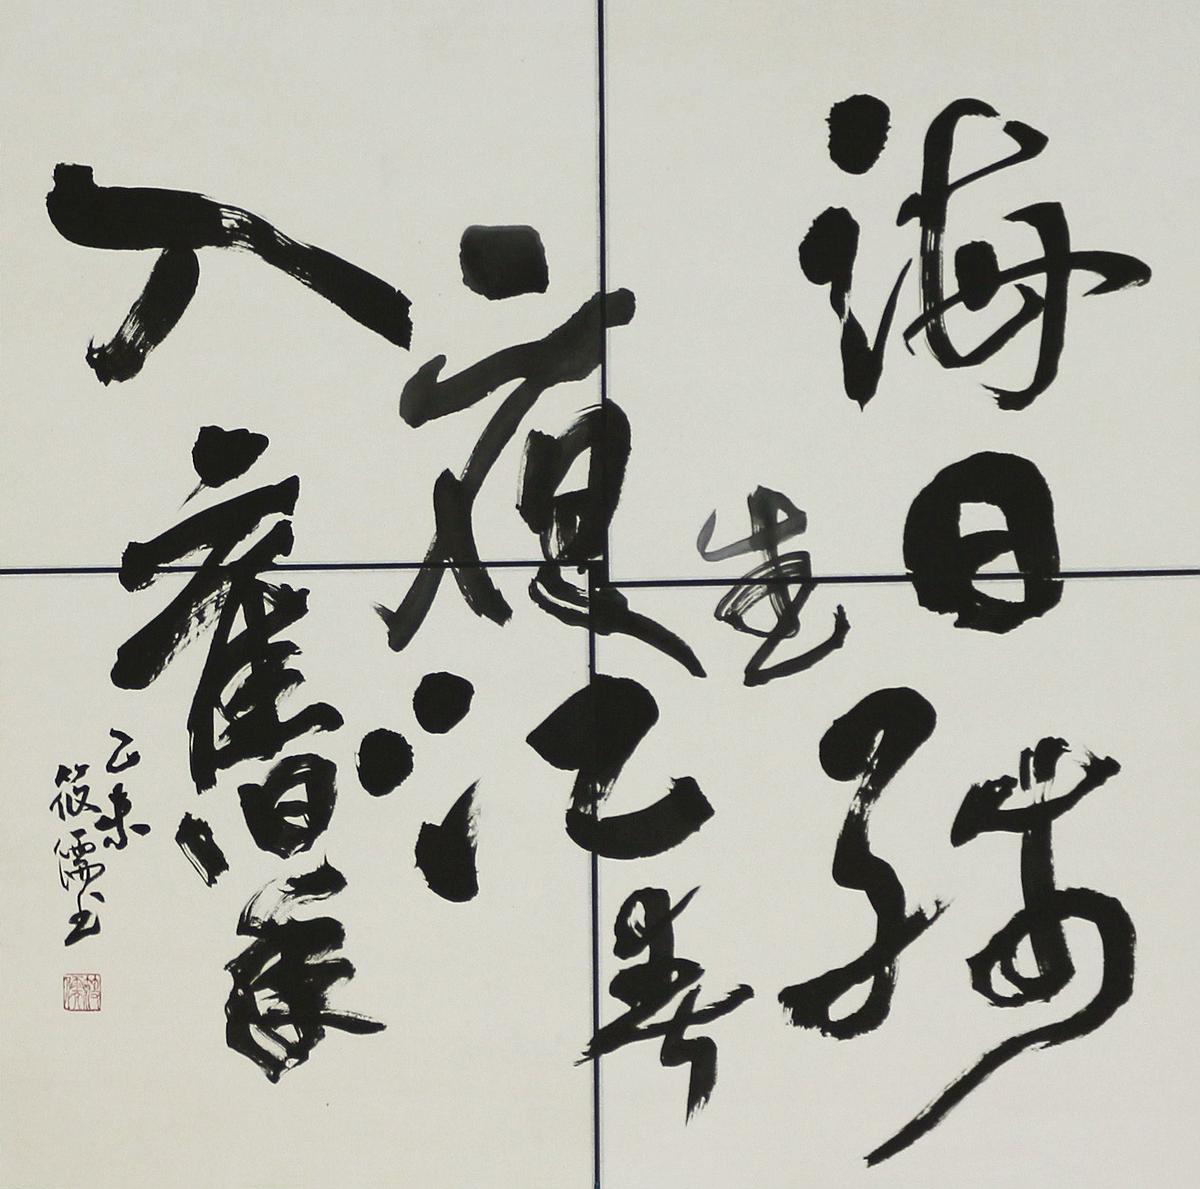 海日生殘
夜江春
入舊年
乙未
筱儒书